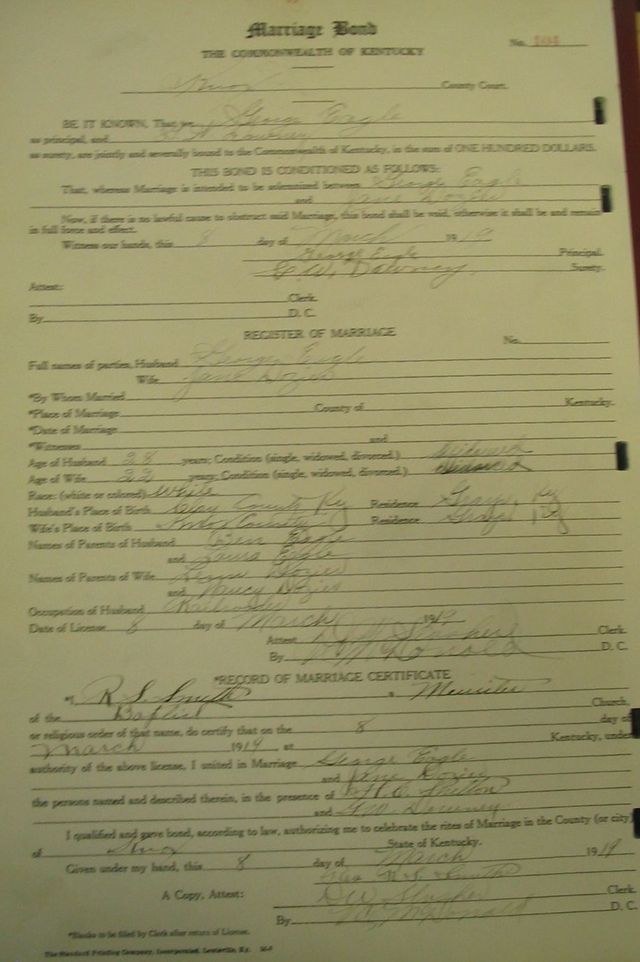 Marriage Bond
THE COMMONWEALTH OF KENTUCKY
No. 104
Knox County Court.
BE IT KNOWN, That we, George Eagle
as principal, and
as surety, are jointly and severally bound to the Commonwealth of Kentucky, in the sum of ONE HUNDRED DOLLARS.
THIS BOND IS CONDITIONED AS FOLLOWS:
That, whereas Marriage is intended to be solemnized between George Eagle
and Jane Dozier
Now, if there is no lawful cause to obstruct said Marriage, this bond shall be void, otherwise it shall be and remain
in full force and effect.
Witness our hands, this 8 day of March 1919
George Eagle Principal.
Downey. Surety.
Attest:
Clerk.
By D. C.
REGISTER OF MARRIAGE
No.
Full names of parties, Husband George Eagle
Wife Jane Dozier
*By Whom Married
*Place of Marriage County of Kentucky.
*Date of Marriage
*Witnesses and
Age of Husband 28 years; Condition (single, widowed, divorced.)
Age of Wife 22 years; Condition (single, widowed, divorced.)
Race: (white or colored) White
Husband's Place of Birth Clay County Ky Residence Ky
Wife's Place of Birth Knox County Residence Ky
Names of Parents of Husband Ben Eagle
and Laura Eagle
Names of Parents of Wife Dozier
and Nancy Dozier
Occupation of Husband
Date of License 8 day of March 1919
Attest Clerk.
By McDonald D. C.
*RECORD OF MARRIAGE CERTIFICATE
*I, R. S. Smith a Minister
of the Baptist Church,
or religious order of that name, do certify that on the 8 day of
March 1919 at Kentucky, under
authority of the above license, I united in Marriage George Eagle
and Jane Dozier
the persons named and described therein, in the presence of
and Downey
I qualified and gave bond, according to law, authorizing me to celebrate the rites of Marriage in the County (or city)
of Knox State of Kentucky.
Given under my hand, this 8 day of March 1919
Smith
A Copy, Attest: Clerk.
By McDonald D. C.
*Blanks to be filled by Clerk after return of License.
The Standard Printing Company, Incorporated, Louisville, Ky.